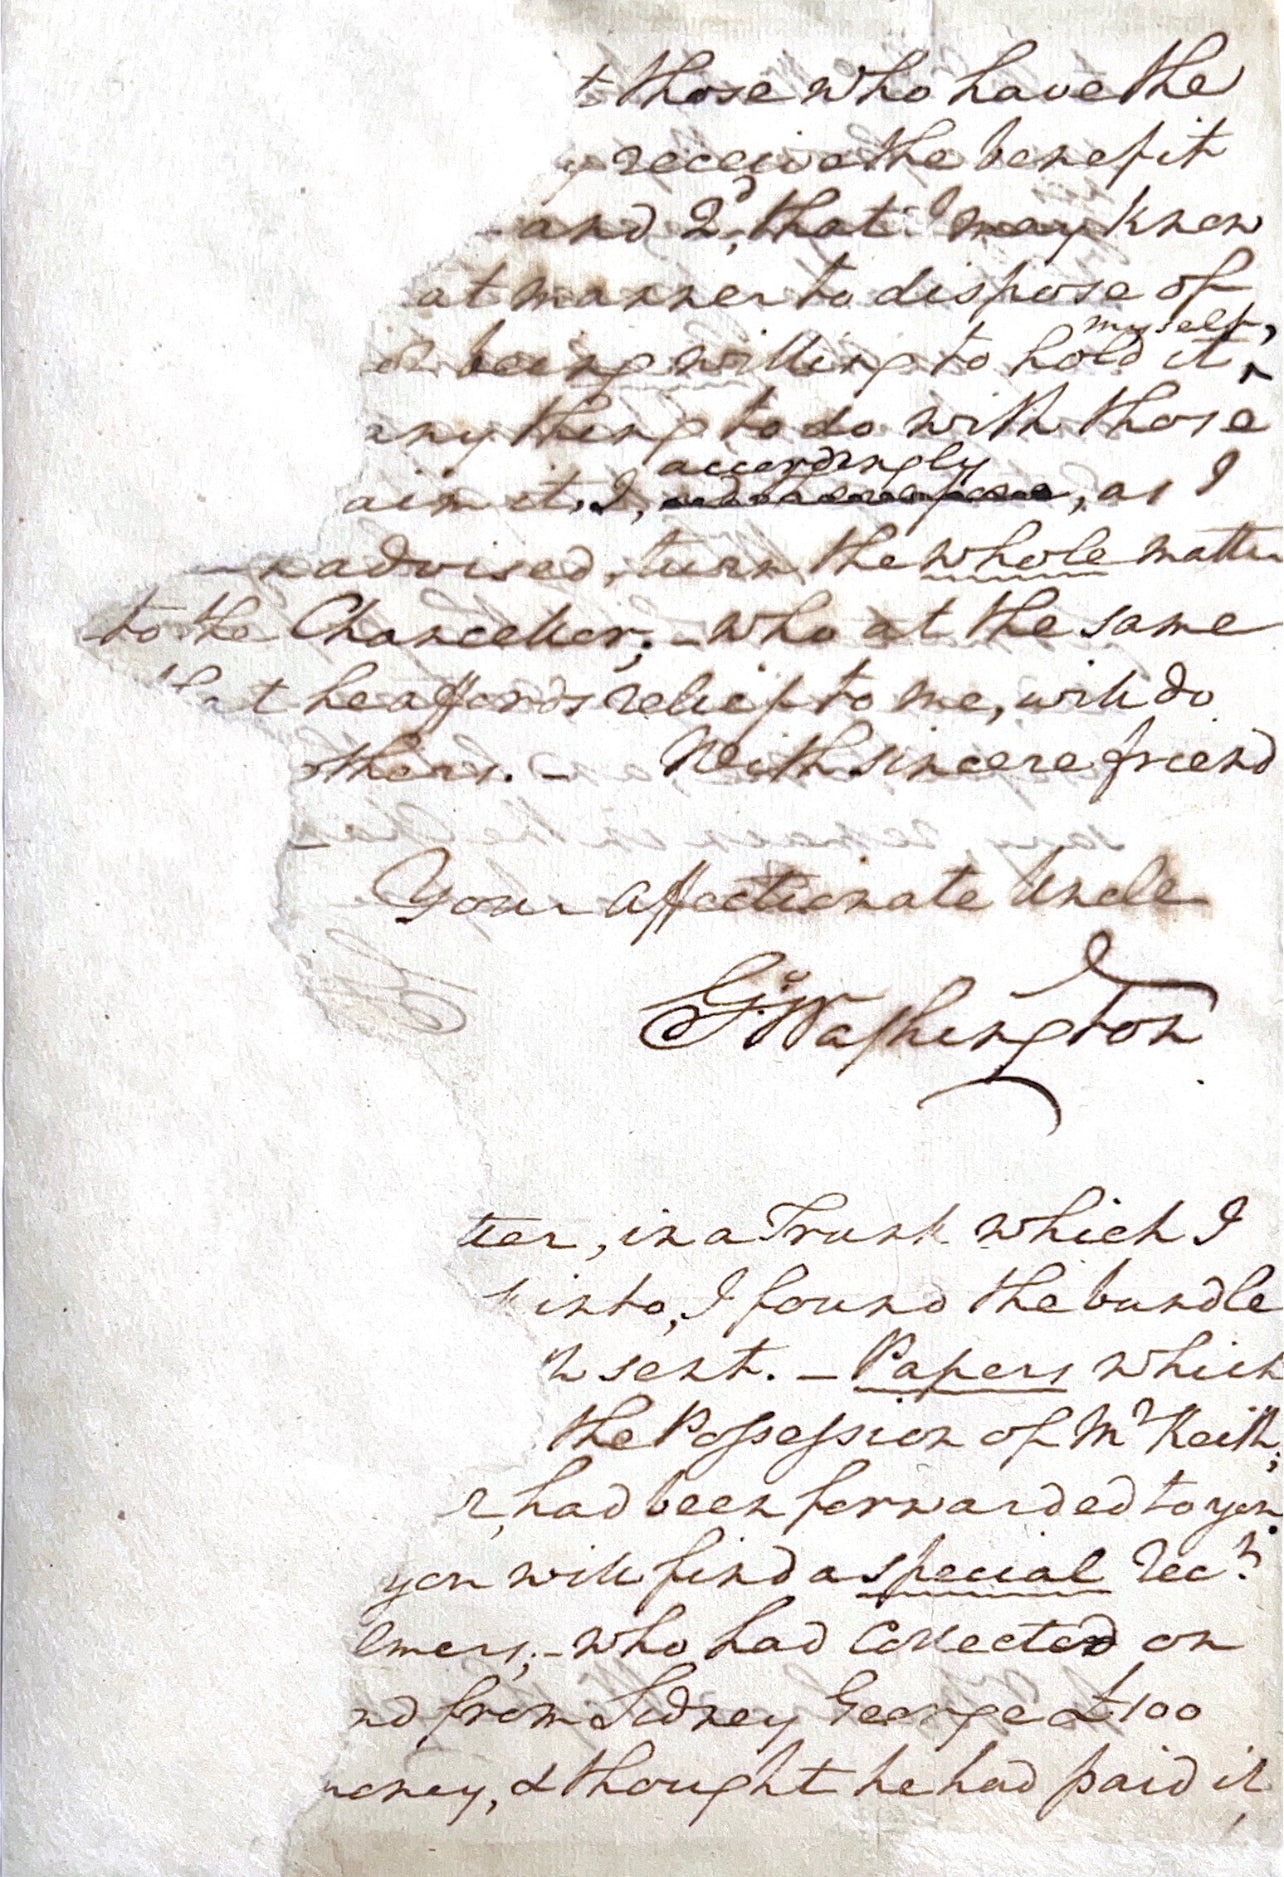 t those who have the
receive the benefit
and 2d, that I may know
at manner to dispose of
myself,
being willing to hold it ^
any thing to do with those
accordingly
aim it. I, and therefore, as I
n advised, turn the whole matter
to the Chancellor; – who at the same
that he affords relief to me, will do
others. – With sincere friend
Your Affectionate Uncle
Go: Washington
tter, in a Trunk which I
k into, I found the bundle
n sent. – Papers which
the Possession of Mr Keith,
r, had been forwarded to you.
you will find a special Rect
lmers, – who had Collected on
nd from Sidney George £100
money, & thought he had paid it,